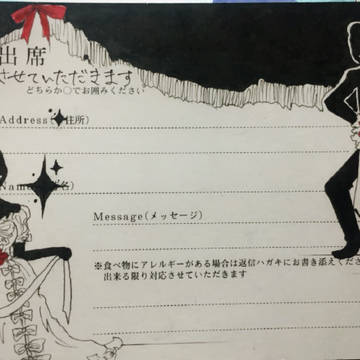 出席
させていただきます
どちらか○でお囲みください
Address(住所)
Name
Message(メッセージ)
※食べ物にアレルギーがある場合は返信ハガキにお書き添えくださ
出来る限り対応させていただきます